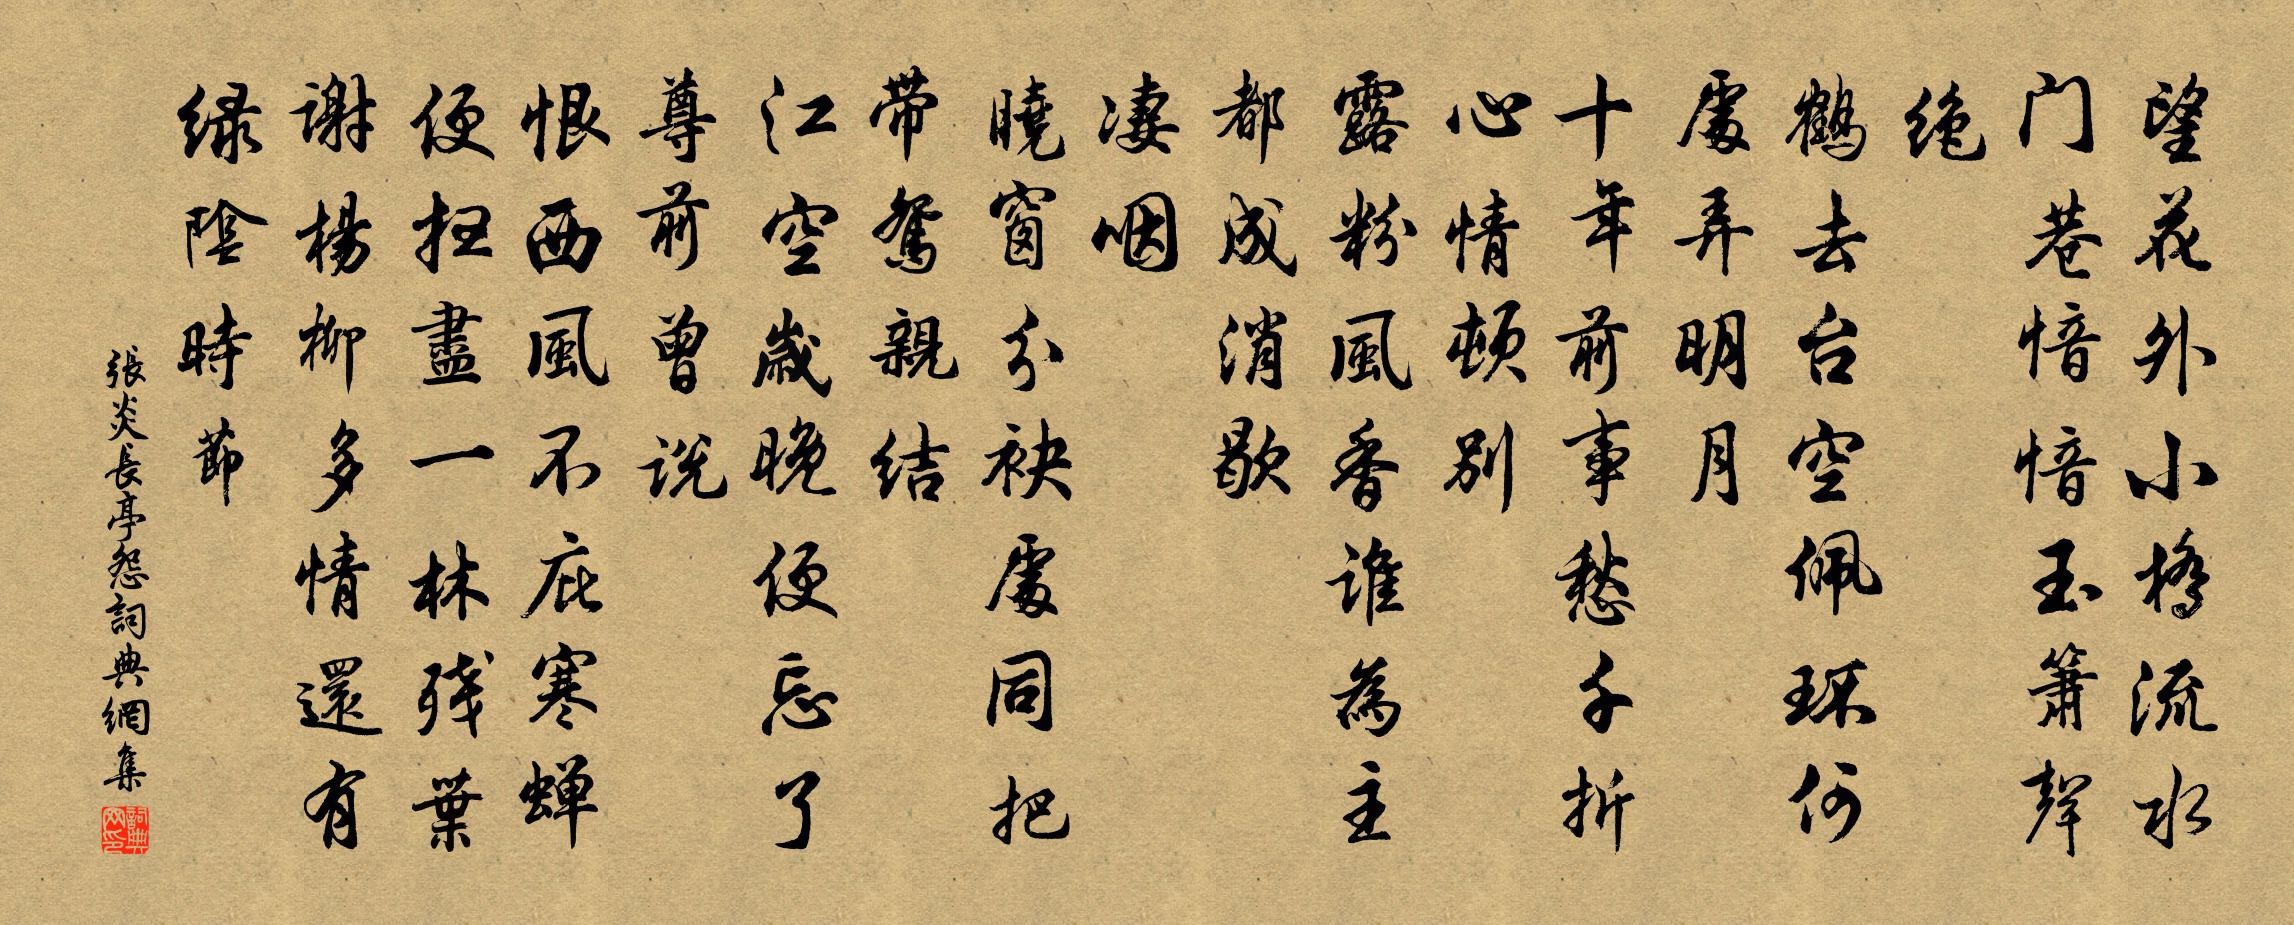 望花外小橋流水
门巷愔愔玉箫聲
绝
鶴去台空佩环何
處弄明月
十年前事愁千折
心情顿别
露粉風香谁為主
都成消歇
凄咽
曉窗分袂處同把
带鸳親结
江空歲晚便忘了
尊前曾说
恨西風不庇寒蝉
便扫盡一林残葉
谢楊柳多情還有
绿陰時節
張炎長亭怨詞典網集
詞典网印